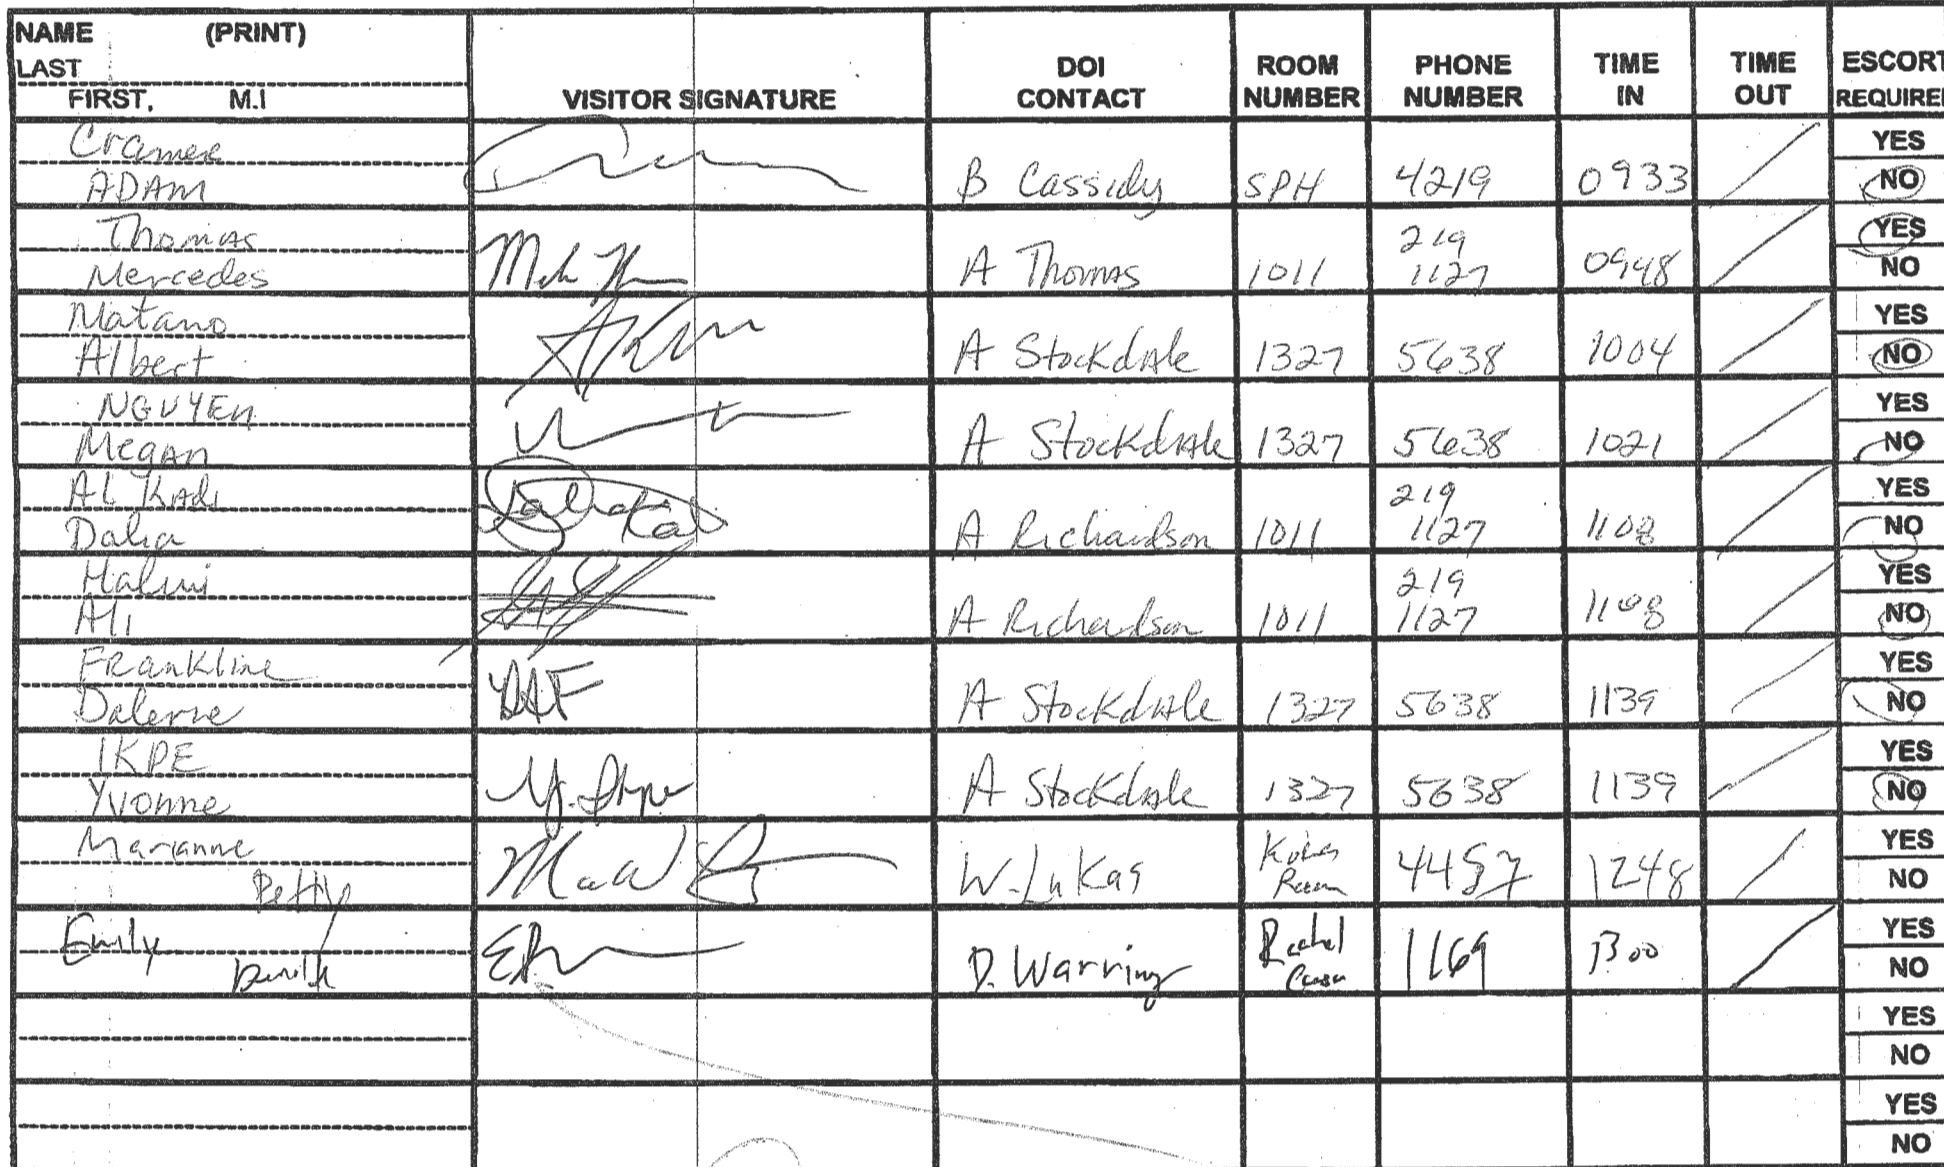 NAME (PRINT)
LAST
FIRST, M.I
VISITOR SIGNATURE
DOI CONTACT
ROOM NUMBER
PHONE NUMBER
TIME IN
TIME OUT
ESCORT REQUIRE
Cramer
ADAM B Cassidy SPH 4219 0933 YES NO
Thomas
Mercedes A Thomas 1011 219 1127 0948 YES NO
Matano
Albert A Stockdale 1327 5638 1004 YES NO
NGUYEN
Megan A Stockdale 1327 5638 1021 YES NO
AL KADi
Dalia A Richardson 1011 219 1127 1108 YES NO
Ali A Richardson 1011 219 1127 1108 YES NO
Frankline
A Stockdale 1327 5638 1139 YES NO
IKPE
Yvonne A Stockdale 1327 5638 1139 YES NO
Marianne
Betty W. Lukas Room 4457 1248 YES NO
Emily
D. Warring Rachel 1169 1300 YES NO
YES
NO
YES
NO